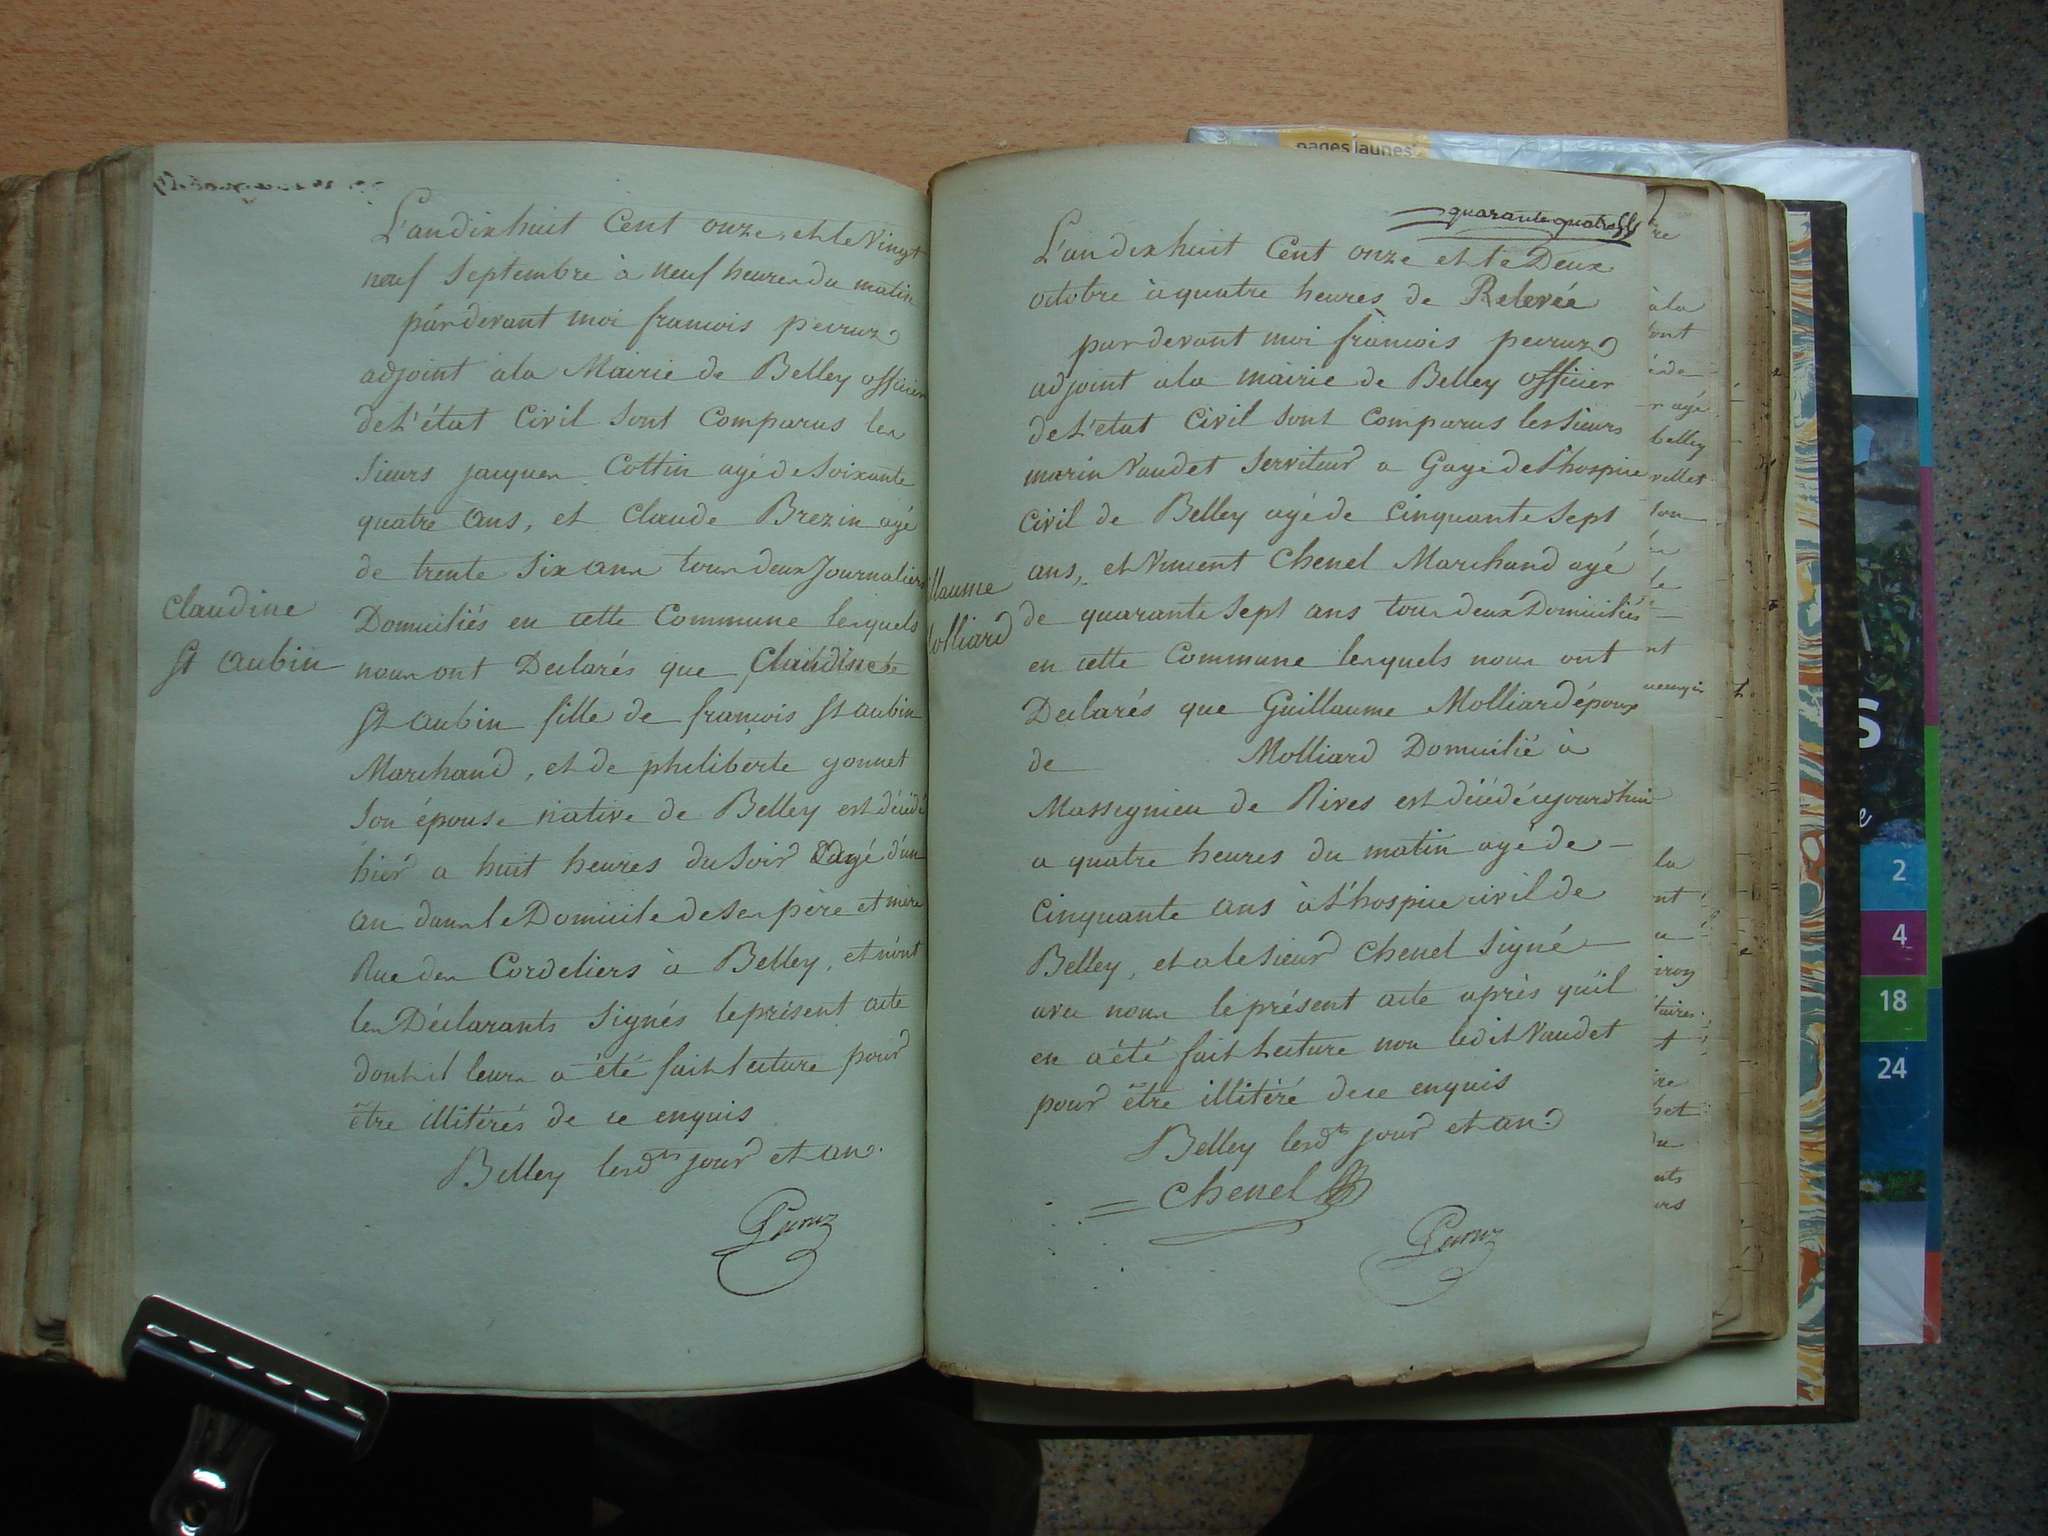 L'an dix huit Cent onze, et le Vingt
neuf Septembre à neuf heures du matin
pardevant moi françois peyruz
adjoint à la Mairie de Belley officier
de L'état Civil sont Comparus les
sieurs jacques Cottin agé de Soixante
quatre ans, et Claude Brezin agé
de trente Six ans tous deux Journaliers
Domiciliés en cette Commune lesquels
nous ont Declarés que Claudine
St aubin fille de françois St aubin
Marchand, et de philiberte gonnet
Son épouse native de Belley est décédé
hier a huit heures du Soir agé d'un
an dans le Domicile de Ses père et mère
Rue des Cordeliers à Belley, et n'ont
les Déclarants Signés le présent acte
dont il leurs a été fait lecture pour
être illitérés de ce enquis
Belley lesdts jour et an.
Claudine
St aubin
quarante quatre
L'an dix huit Cent onze et le Deux
octobre à quatre heures de Relevée
pardevant moi françois peyruz
adjoint à la mairie de Belley officier
de L'etat Civil sont Comparus les Sieurs
marin Vaudet Serviteur a Gage de l'hospice
Civil de Belley agé de Cinquante Sept
ans, et Vincent Chenel Marchand agé
de quarante Sept ans tous deux Domiciliés
en cette Commune lesquels nous ont
Declarés que Guillaume Molliard époux
de Molliard Domicilié à
Massignieu de Rives est décédé cejourd'hui
a quatre heures du matin agé de
Cinquante ans à L'hospice civil de
Belley, et a le Sieur Chenel Signé
avec nous le présent acte après qu'il
en a été fait Lecture non ledit Vaudet
pour être illitéré de ce enquis
Belley lesdts jour et an.
Chenel
llaume
olliard
pages jaunes
2
4
18
24